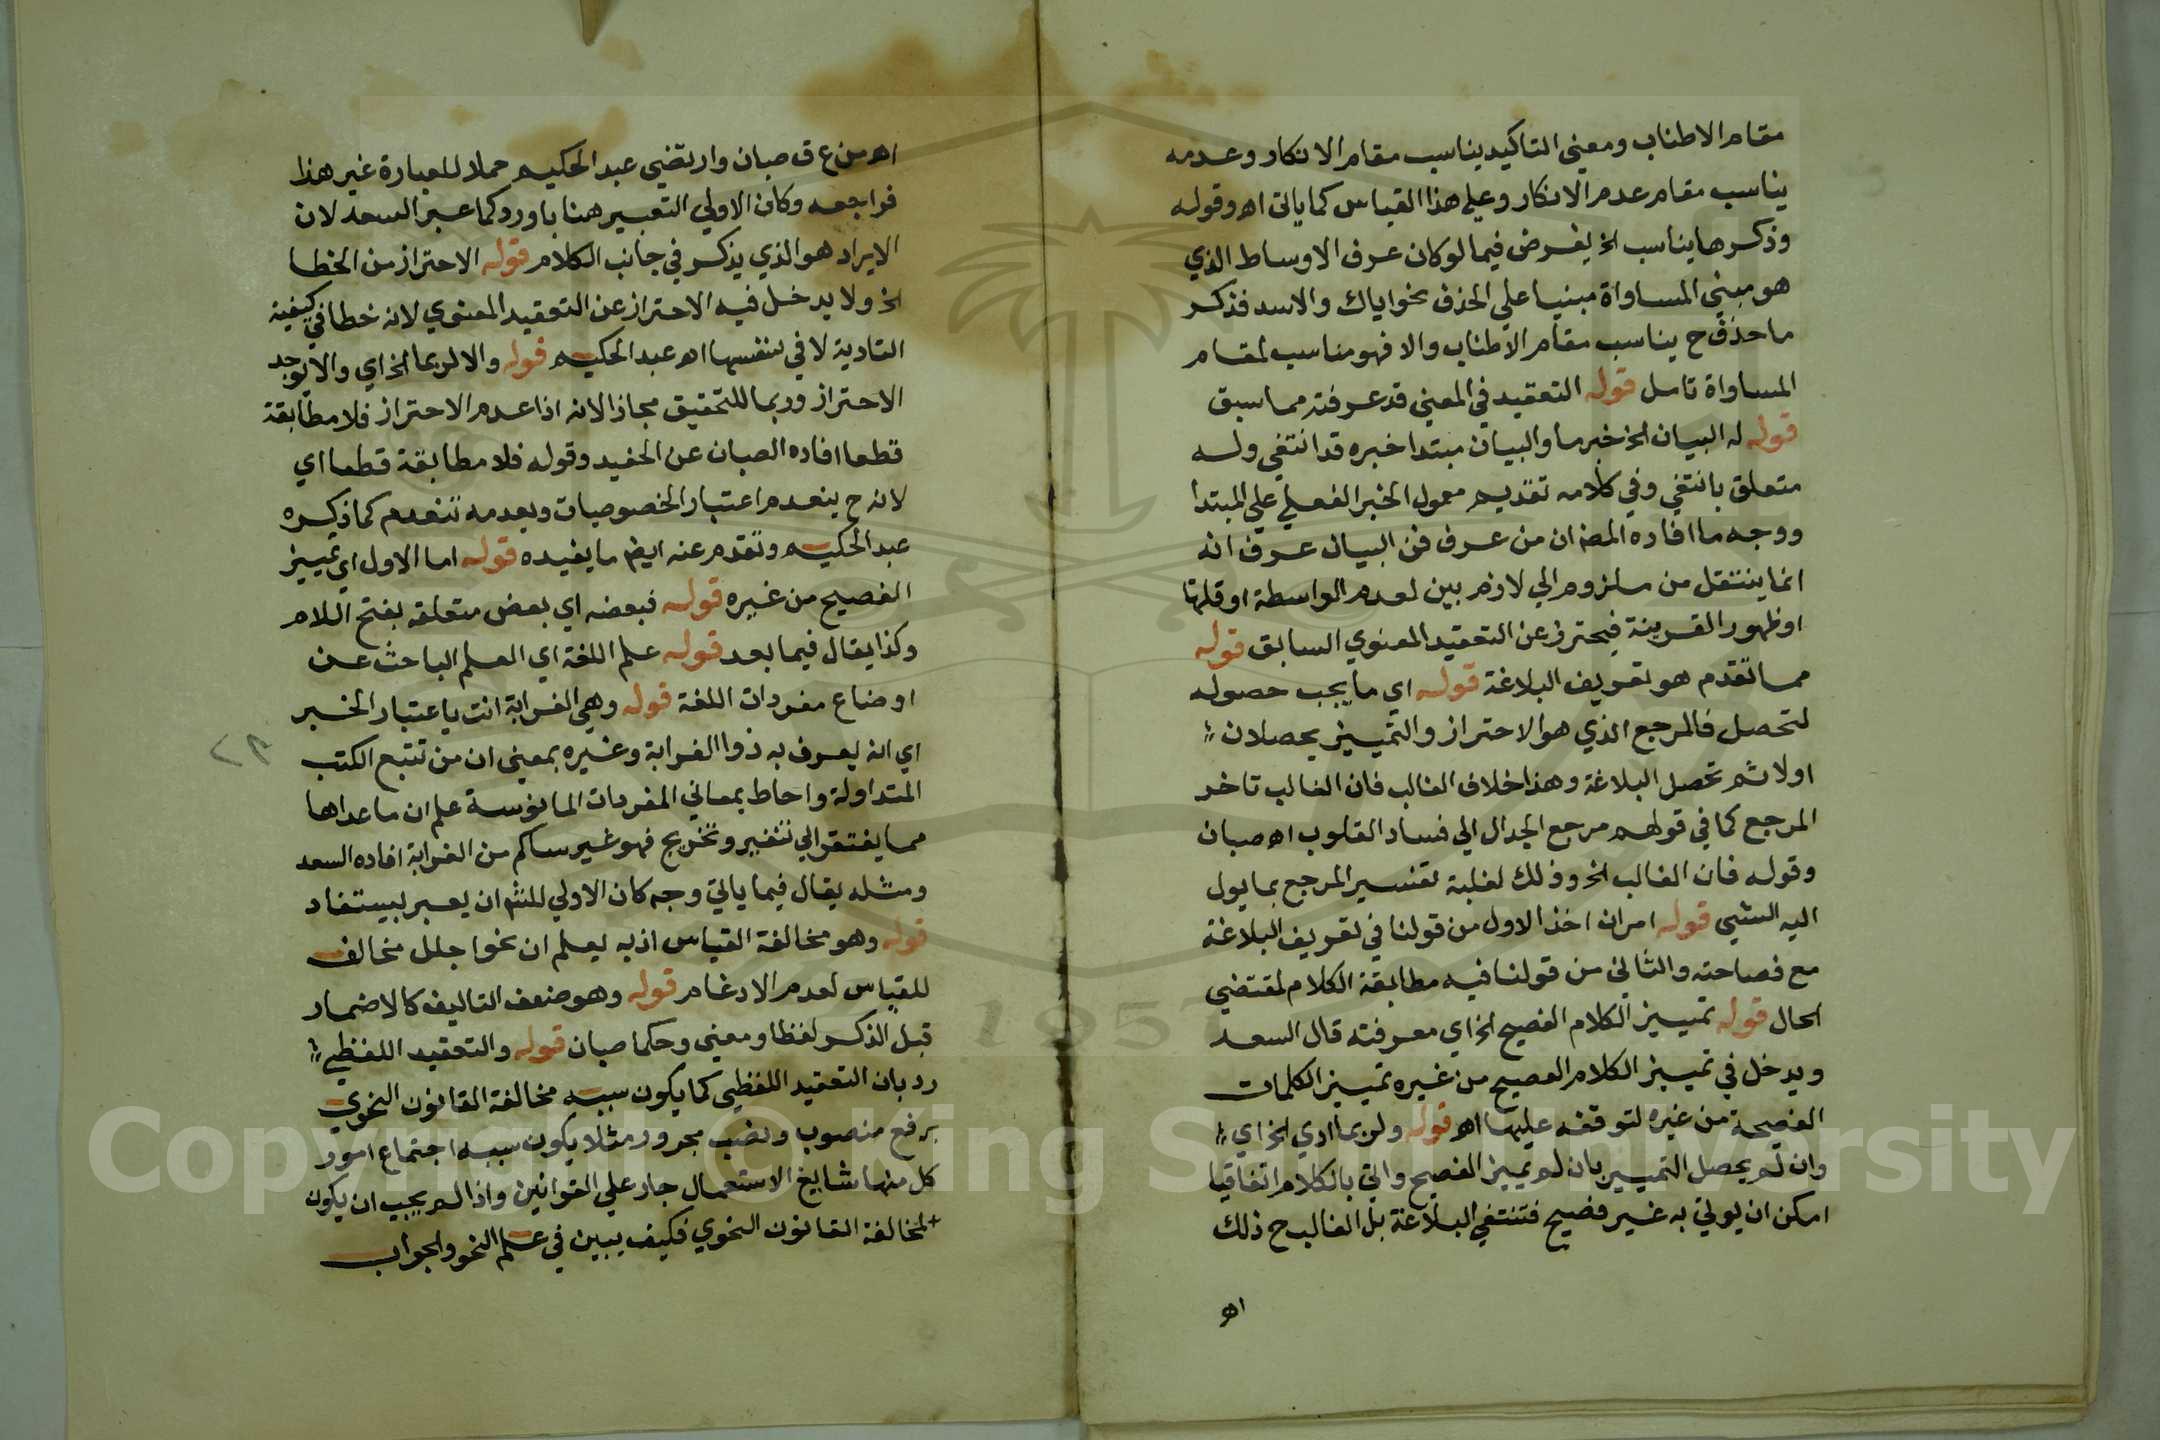 مقام الاطناب ومعني التاكيد يناسب مقام الانكار وعدمه
يناسب مقام عدم الانكار وعلي هذا القياس كما ياتي اه وقوله
وذكرها يناسب الخ يفرض فيما لو كان عرف الاوساط الذي
هو مبني المساواة مبنيا علي الحذف نحو اياك والاسد فذكر
ما حذف ح يناسب مقام الاطناب والا فهو مناسب لمقام
المساواة تامل قوله التعقيد في المعني قد عرفته مما سبق
قوله له البيان الخ خبر ما والبيان مبتدا خبره قد انتفي وله
متعلق بانتفي وفي كلامه تقديم معمول الخبر الفعلي علي المبتدا
ووجه ما افاده المصـ ان من عرف فن البيان عرف انه
انما ينتقل من ملزوم الي لازم بين لعدم الواسطة او قلتها
او ظهور القرينة فيحترز عن التعقيد المعنوي السابق قوله
مما تقدم هو تعريف البلاغة قوله اي ما يجب حصوله
لتحصل فالمرجع الذي هو الاحتراز والتمييز يحصلان
اولا ثم تحصل البلاغة وهذا خلاف الغالب فان الغالب تاخر
المرجع كما في قولهم مرجع الجدال الي فساد القلوب اه صبان
وقوله فان الغالب الخ وذلك لغلبة تفسير المرجع بما يول
اليه الشي قوله امران اخذ الاول من قولنا في تعريف البلاغة
مع فصاحته والثاني من قولنا فيه مطابقة الكلام لمقتضي
الحال قوله تمييز الكلام الفصيح الخ اي معرفته قال السعد
ويدخل في تمييز الكلام الفصيح من غيره تمييز الكلمات
الفصيحة من غيره لتوقفه عليها اه قوله ولربما ادي الخ اي
وان لم يحصل التمييز بان لم يميز الفصيح واتي بالكلام اتفاقيا
امكن ان يوتي به غير فصيح فتنتفي البلاغة بل الغالب ح ذلك
اه
اه من ع ق صبان وارتضي عبد الحكيم حملا للعبارة غير هذا
فراجعه وكان الاولي التعبير هنا باورد كما عبر السعد لان
الايراد هو الذي يذكر في جانب الكلام قوله الاحتراز من الخطا
الخ ولا يدخل فيه الاحتراز عن التعقيد المعنوي لانه خطا في كيفية
التادية لا في نفسها اه عبد الحكيم قوله والا لربما الخ اي والا يوجد
الاحتراز وربما للتحقيق مجازا لانه اذا عدم الاحتراز فلا مطابقة
قطعا افاده الصبان عن الحفيد وقوله فلا مطابقة قطعا اي
لانه ح ينعدم اعتبار الخصوصيات وبعدمه تنعدم كما ذكره
عبد الحكيم وتقدم عنه ايضا ما يفيده قوله اما الاول اي تمييز
الفصيح من غيره قوله فبعضه اي بعض متعلقه بفتح اللام
وكذا يقال فيما بعد قوله علم اللغة اي العلم الباحث عن
اوضاع مفردات اللغة قوله وهي الغرابة انث باعتبار الخبر
اي انه يعرف به ذوا الغرابة وغيره بمعني ان من تتبع الكتب
المتداولة واحاط بمعاني المفردات المانوسة علم ان ما عداها
مما يفتقر الي تنقير وتخريج فهو غير سالم من الغرابة افاده السعد
ومثله يقال فيما ياتي وجه كان الاولي للشـ ان يعبر ليستفاد
قوله وهو مخالفة القياس اذ به يعلم ان نحو اجلل مخالف
للقياس لعدم الادغام قوله وهو ضعف التاليف كالاضمار
قبل الذكر لفظا ومعني وحكما صبان قوله والتعقيد اللفظي
رد بان التعقيد اللفظي كما يكون سببه مخالفة القانون النحوي
برفع منصوب ونصب مجرور مثلا يكون سببه اجتماع امور
كل منها شايع الاستعمال جار علي القوانين واذا لم يجب ان يكون
لمخالفة القانون النحوي فكيف يبين في علم النحو والجواب
Copyright © King Saud University
1957